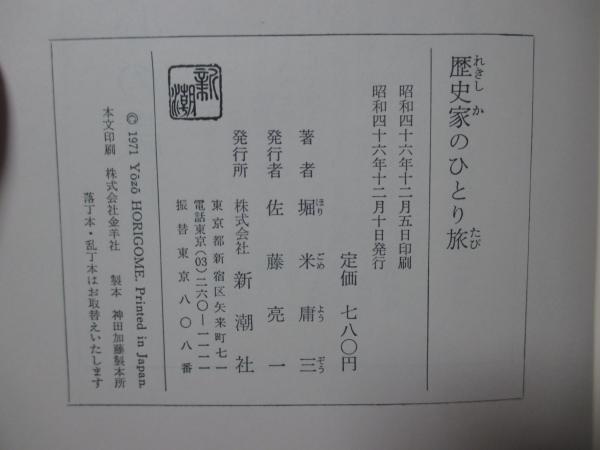 歴史家のひとり旅
れきしか
たび
昭和四十六年十二月五日印刷
昭和四十六年十二月十日発行
定価 七八〇円
著者 堀米庸三
ほりごめようぞう
発行者 佐藤亮一
発行所 株式会社 新潮社
東京都新宿区矢来町七一
電話東京(03)二六〇—一一一一
振替東京八〇八番
新潮
© 1971 Yōzō HORIGOME. Printed in Japan.
本文印刷 株式会社金羊社 製本 神田加藤製本所
落丁本・乱丁本はお取替えいたします